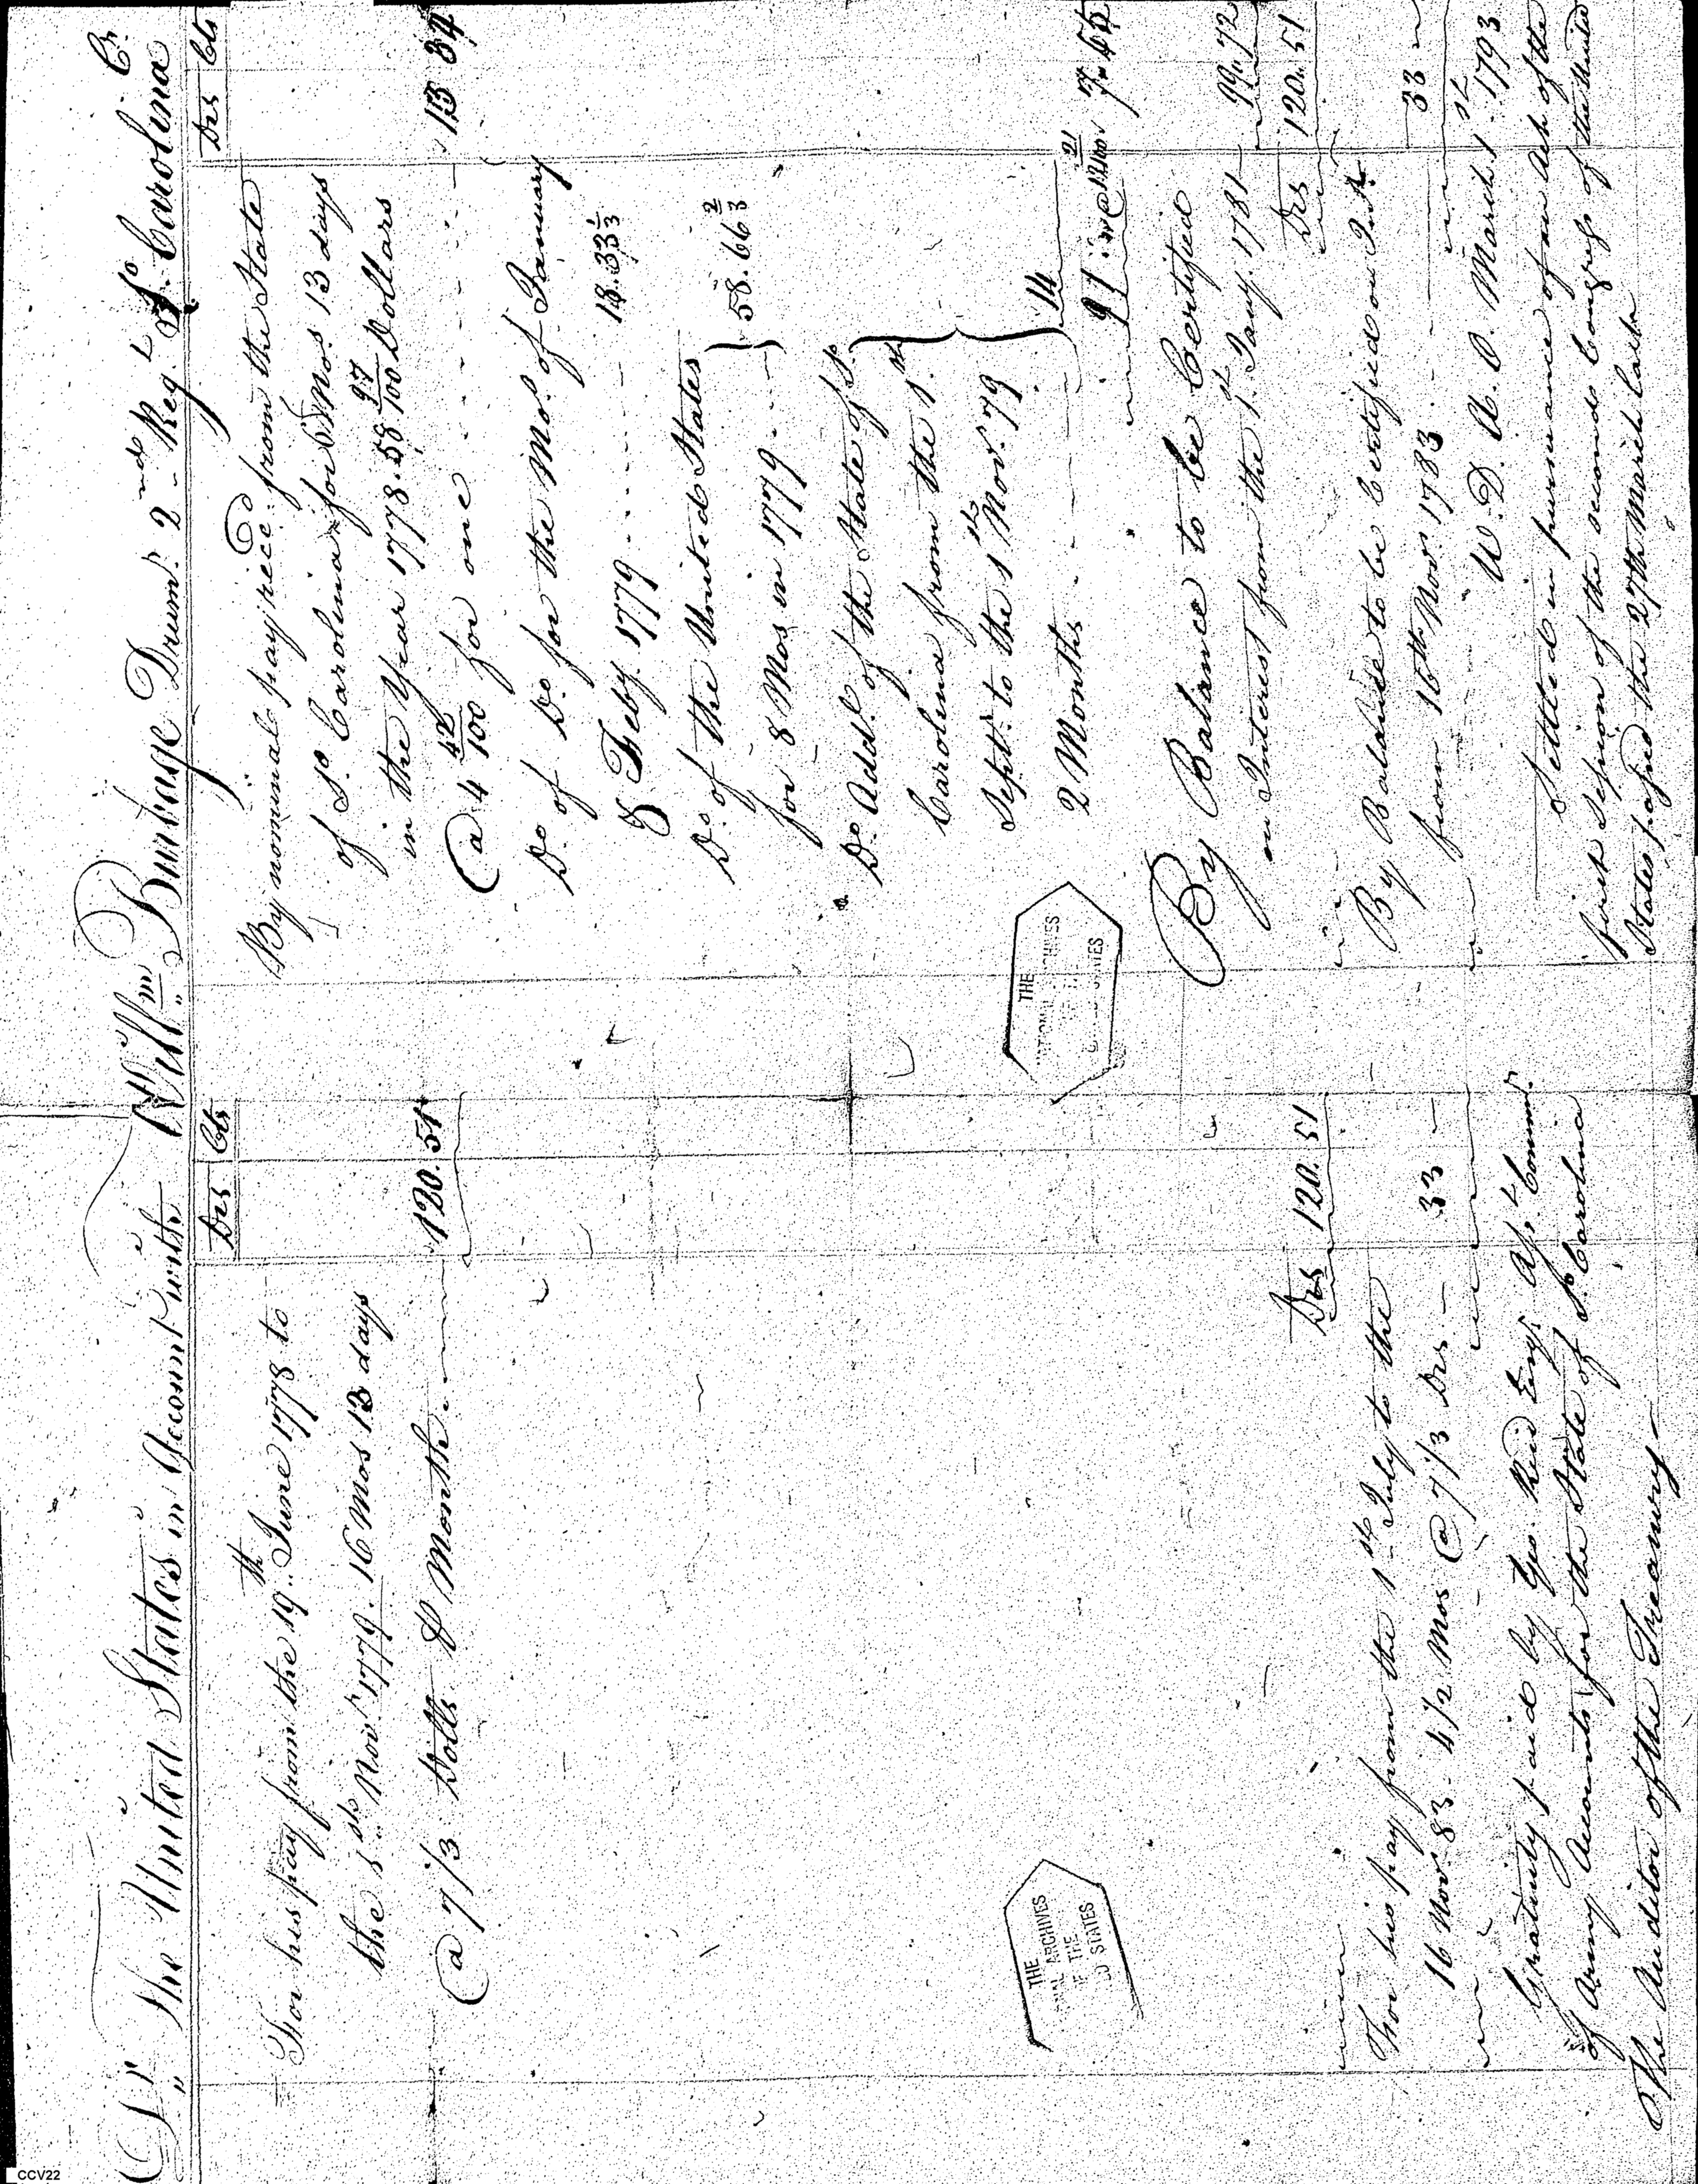 Dr The United States in Account with Willm Burbage Drumr 2nd Regt So Carolina Cr
Drs Cts
For his pay from the 19th June 1778 to
the 1st Novr 1779. 16 Mos 13 days
@ 7 1/3 Dolls Months 120. 51
Drs 120. 51
For his pay from the 1st July to the
16 Novr 83. 4 1/2 Mos @ 7 1/3 Drs — 33 —
Gratuity paid by Geo. Reid Esqr Asst Commr
of Army Accounts for the State of So Carolina
The Auditor of the Treasury —
Drs Cts
By nominal pay recd from the State
of So Carolina for 6 Mos 13 days
in the Year 1778. 58 97/100 Dollars
@ 4 42/100 for one 13 34
Do of Do for the Mos of January
& Feby 1779 18.33 1/3
Do of the United States
for 8 Mos in 1779 58.66 2/3
Do Addl of the State of So
Carolina from the 1st
Septr to the 1st Novr 79
2 Months 14
91
By Balance to be Certified
on Interest from the 1st Jany. 1781 99 72
Drs 120. 51
By Balance to be Certified on Int.
from 16th Novr 1783 33
W. D. A. O. March 1st 1793
Settled in pursuance of an Act of the
first Session of the second Congress of the United
States passed the 27th March last
THE
NATIONAL ARCHIVES
OF THE
UNITED STATES
THE
NATIONAL ARCHIVES
OF THE
UNITED STATES
CCV22